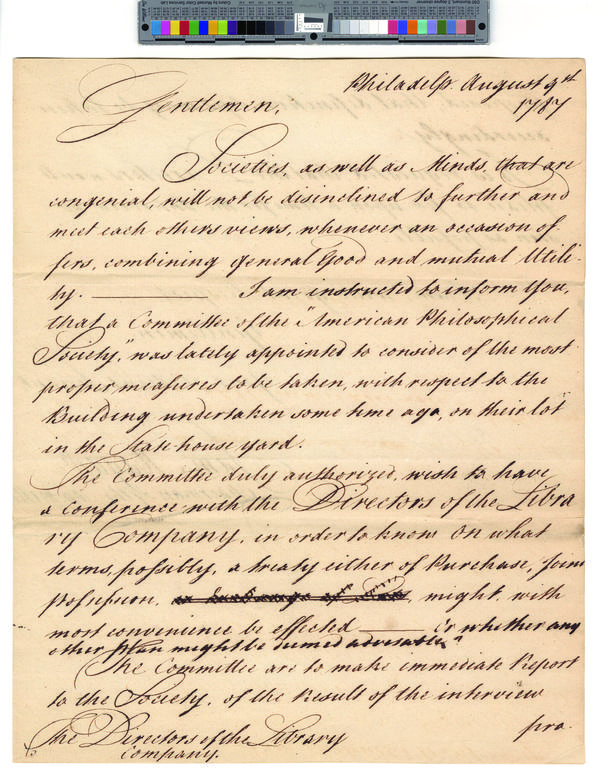 Philadelp. August 9th
1787
Gentlemen,
Societies, as well as Minds, that are
congenial, will not be disinclined to further and
meet each others views, whenever an occasion of-
fers, combining general Good and mutual Utili-
ty. ——— I am instructed to inform You,
that a Committee of the "American Philosophical
Society," was lately appointed to consider of the most
proper measures to be taken, with respect to the
Building undertaken some time ago, on their lot
in the State house yard.
The Committee duly authorized, wish to have
a Conference with the Directors of the Libra
ry Company, in order to know on what
terms, possibly, a treaty either of Purchase, joint
possession, might with
most convenience be effected ——— Or whether any
other plan might be deemed adviseable."
The Committee are to make immediate Report
to the Society, of the Result of the interview
pro.
The Directors of the Library
Company.